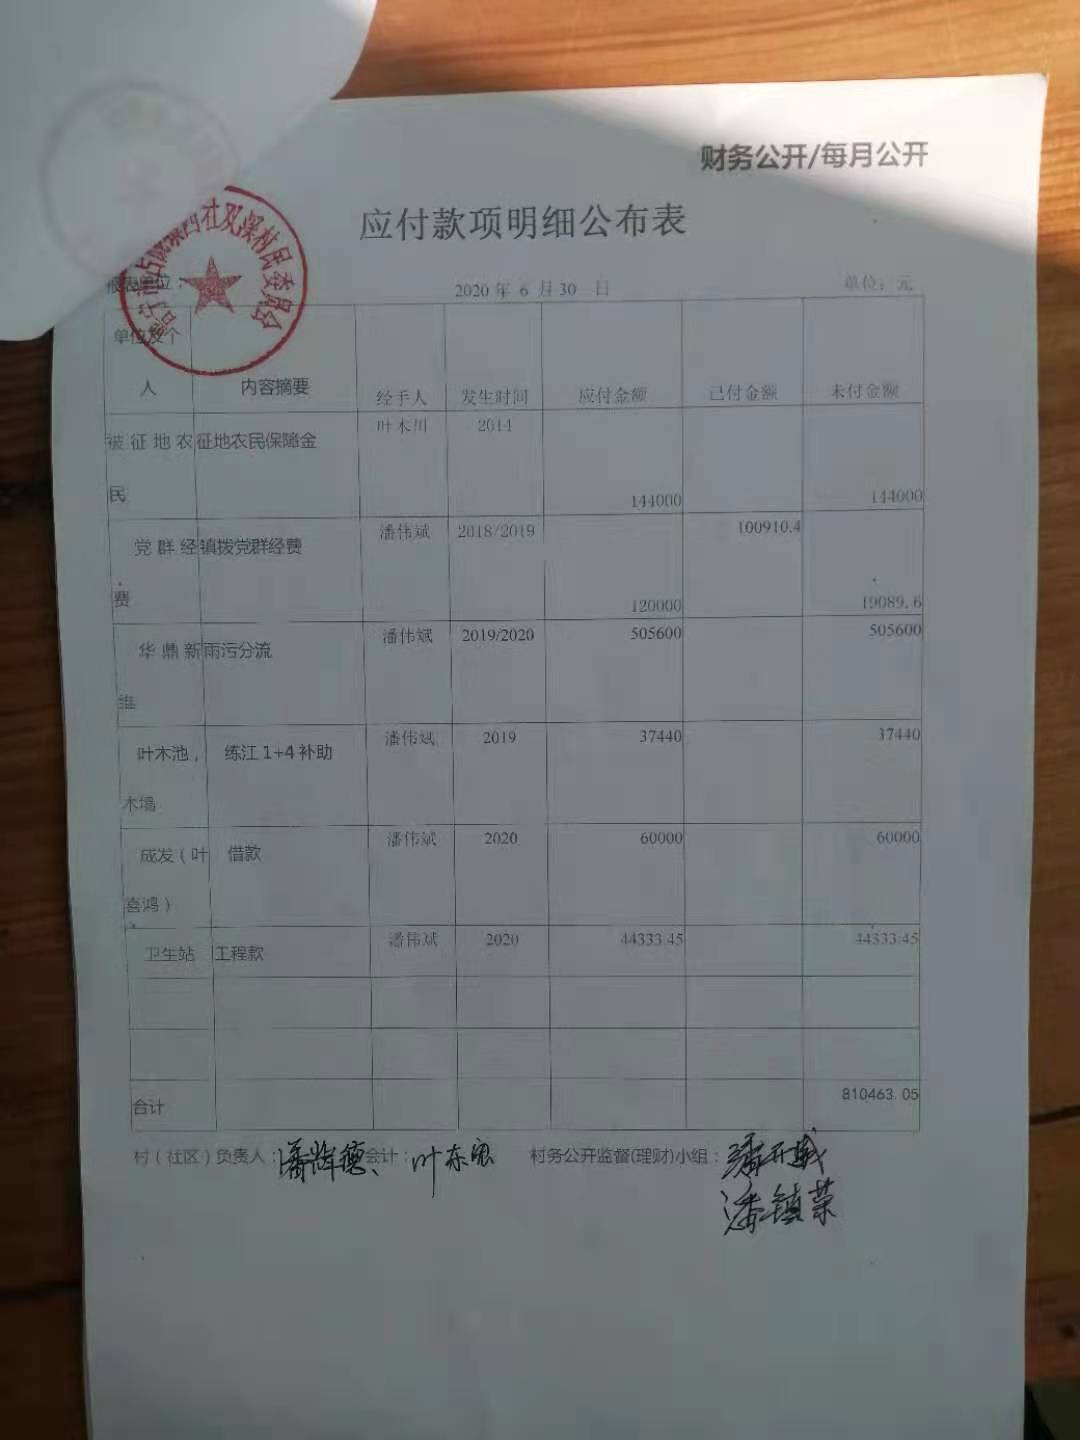 财务公开/每月公开
应付款项明细公布表
报表单位：
2020 年 6 月 30 日
单位：元
单位及个人 内容摘要 经手人 发生时间 应付金额 已付金额 未付金额
被征地农民 征地农民保障金 叶木川 2014 144000 144000
党群经费 镇拨党群经费 潘伟斌 2018/2019 120000 100910.4 19089.6
华鼎新 雨污分流 潘伟斌 2019/2020 505600 505600
叶木池，木 练江 1+4 补助 潘伟斌 2019 37440 37440
成发（叶喜鸿） 借款 潘伟斌 2020 60000 60000
卫生站 工程款 潘伟斌 2020 44333.45 44333.45
合计 810463.05
村（社区）负责人：潘辉德、会计：叶东宏 村务公开监督(理财)小组：潘开
潘镇荣
双溪村民委员会